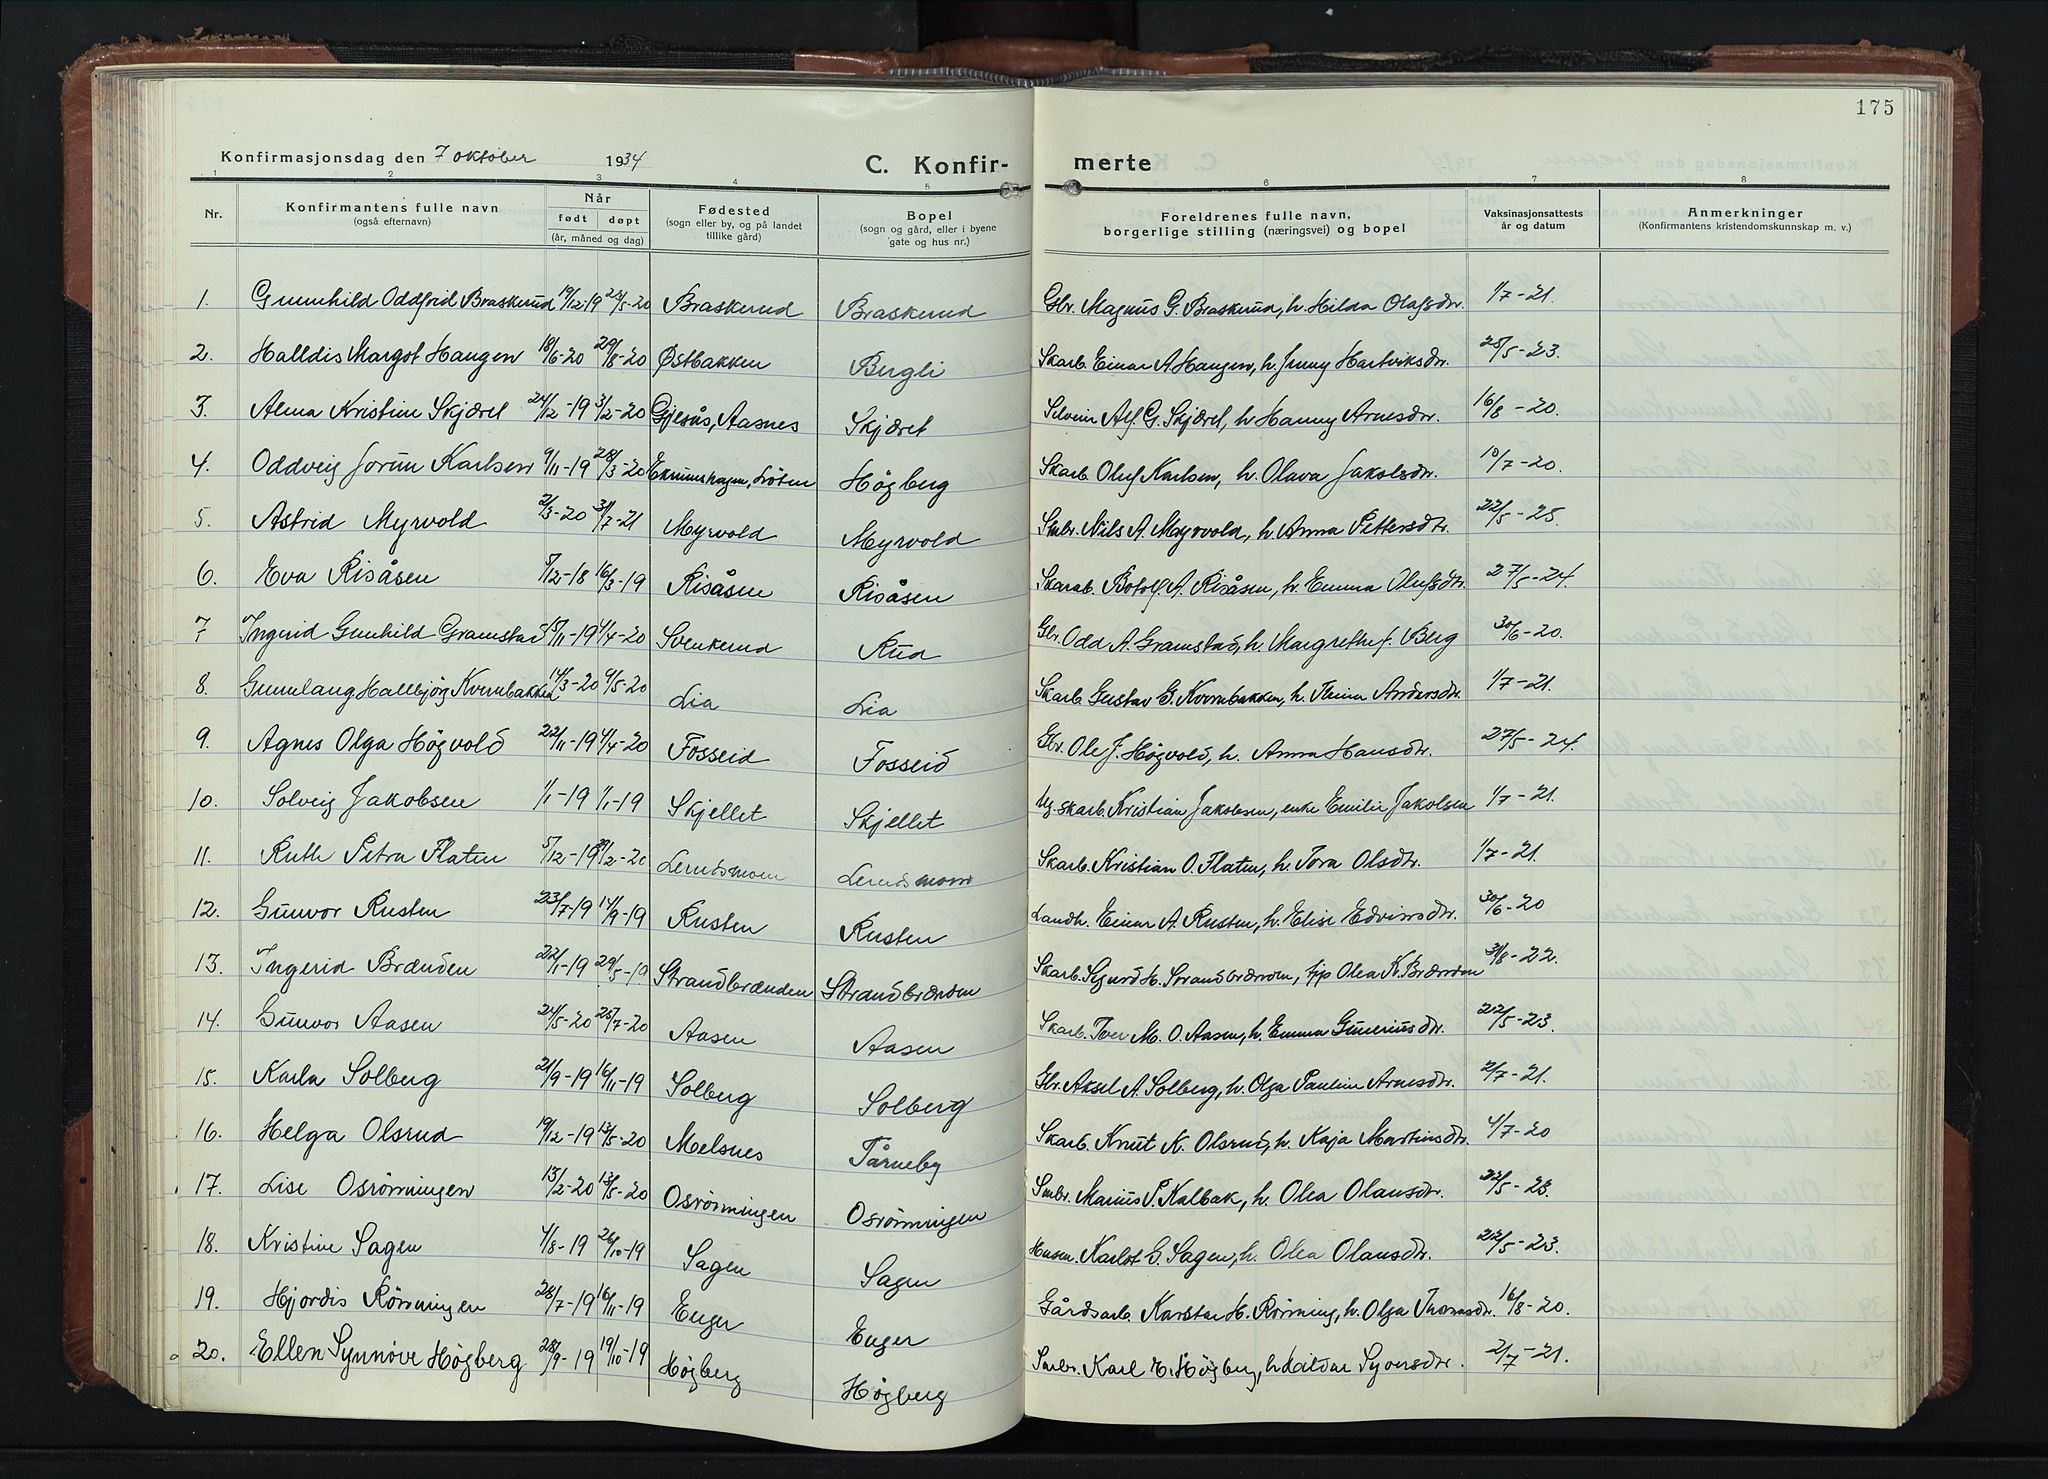 175
Konfirmasjonsdag den 7 oktober 1934 C. Konfir- merte
1 2 3 4 5 6 7 8
Nr. Konfirmantens fulle navn (også efternavn) Når født døpt (år, måned og dag) Fødested (sogn eller by, og på landet tillike gård) Bopel (sogn og gård, eller i byene gate og hus nr.) Foreldrenes fulle navn, borgerlige stilling (næringsvei) og bopel Vaksinasjonsattests år og datum Anmerkninger (Konfirmantens kristendomskunnskap m. v.)
1. Gunnhild Oddfrid Braskerud 19/12-19 24/5-20 Braskerud Braskerud Gbr. Magnus G. Braskerud, h. Hilda Olafsdtr. 1/7-21.
2. Halldis Margot Haugen 18/6-20 29/8-20 Østbakken Bergli Skarb. Einar A. Haugen, h. Jenny Hartviksdtr. 25/5-23.
3. Alma Kristine Skjæret 24/12-19 3/2-20 Gjesås, Aasnes Skjæret Selveier Alf. G. Skjæret, h. Hanny Arnesdtr. 16/8-20.
4. Oddveig Jorun Karlsen 9/11-19 28/3-20 Løten Høgberg Skarb. Oluf Karlsen, h. Olava Jakobsdtr. 10/7-20.
5. Astrid Myrvold 2/3-20 31/7-21 Myrvold Myrvold Smbr. Nils A. Myrvold, h. Anna Pettersdtr. 22/5-25.
6. Eva Risåsen 5/12-18 16/3-19 Risåsen Risåsen Skarab. Botolf. A. Risåsen, h. Emma Olufsdtr. 27/5-24.
7 Ingerid Gunhild Gramstad 15/11-19 4/4-20 Svenkerud Rud Gbr. Odd A. Gramstad, h. Margrethe J. Berg 30/6-20.
8. Gunnlaug Hallbjörg Kvernbakken 14/3-20 9/5-20 Lia Lia Skarb. Gustav G. Kvernbakken, h. Thina Andersdtr. 1/7-21.
9. Agnes Olga Høgvold 22/11-19 4/4-20 Fosseid Fosseid Gbr. Ole J. Høgvold, h. Anna Hansdtr. 27/5-24.
10. Solveig Jakobsen 1/1-19 1/1-19 Skjellet Skjellet skarb. Kristian Jakobsen, enke Emilie Jakobsen 1/7-21.
11. Ruth Petra Flaten 5/12-19 2-20 Lerudsmoen Lerudsmoen Skarb. Kristian O. Flaten, h. Tora Olsdtr. 1/7-21.
12. Gunvor Rusten 23/7-19 14/9-19 Rusten Rusten Landh. Einar A. Rusten, h. Elise Edvinsdtr. 30/6-20
13. Ingerid Brænden 22/1-19 29/5-19. Strandbrænden Strandbrænden Skarb. Sigurd H. Strandbrænden, Olea K. Brænden 31/8-22.
14. Gunvor Aasen 24/5-20 25/7-20 Aasen Aasen Skarb. Iver M. O. Aasen, h. Emma Guneriusdtr. 22/5-23.
15. Karla Solberg 21/9-19 16/11-19 Solberg Solberg Gbr. Aksel A. Solberg, h. Olga Pauline Arnesdtr. 2/7-21.
16. Helga Olsrud 19/12-19 13/5-20 Melsnes Tårneby Skarb. Knut K. Olsrud, h. Kaja Martinsdtr. 4/7-20
17. Lise Osrönningen 13/2-20 13/5-20 Osrönningen Osrönningen Smbr. Marius P. Kalbak, h. Olea Olausdtr. 22/5-23.
18. Kristine Sagen 4/8-19 26/10-19 Sagen Sagen Husm. Karlot G. Sagen, h. Olea Olausdtr. 22/5-23.
19. Hjordis Rönningen 28/7-19 16/11-19 Enger Enger Gårdsarb. Karsten H. Rönning, h. Olga Thomasdtr. 16/8-20.
20. Ellen Synnöve Högberg 28/9-19 19/10-19 Högberg Högberg Smbr. Karl E. Högberg, h. Syversdtr. 2/7-21.